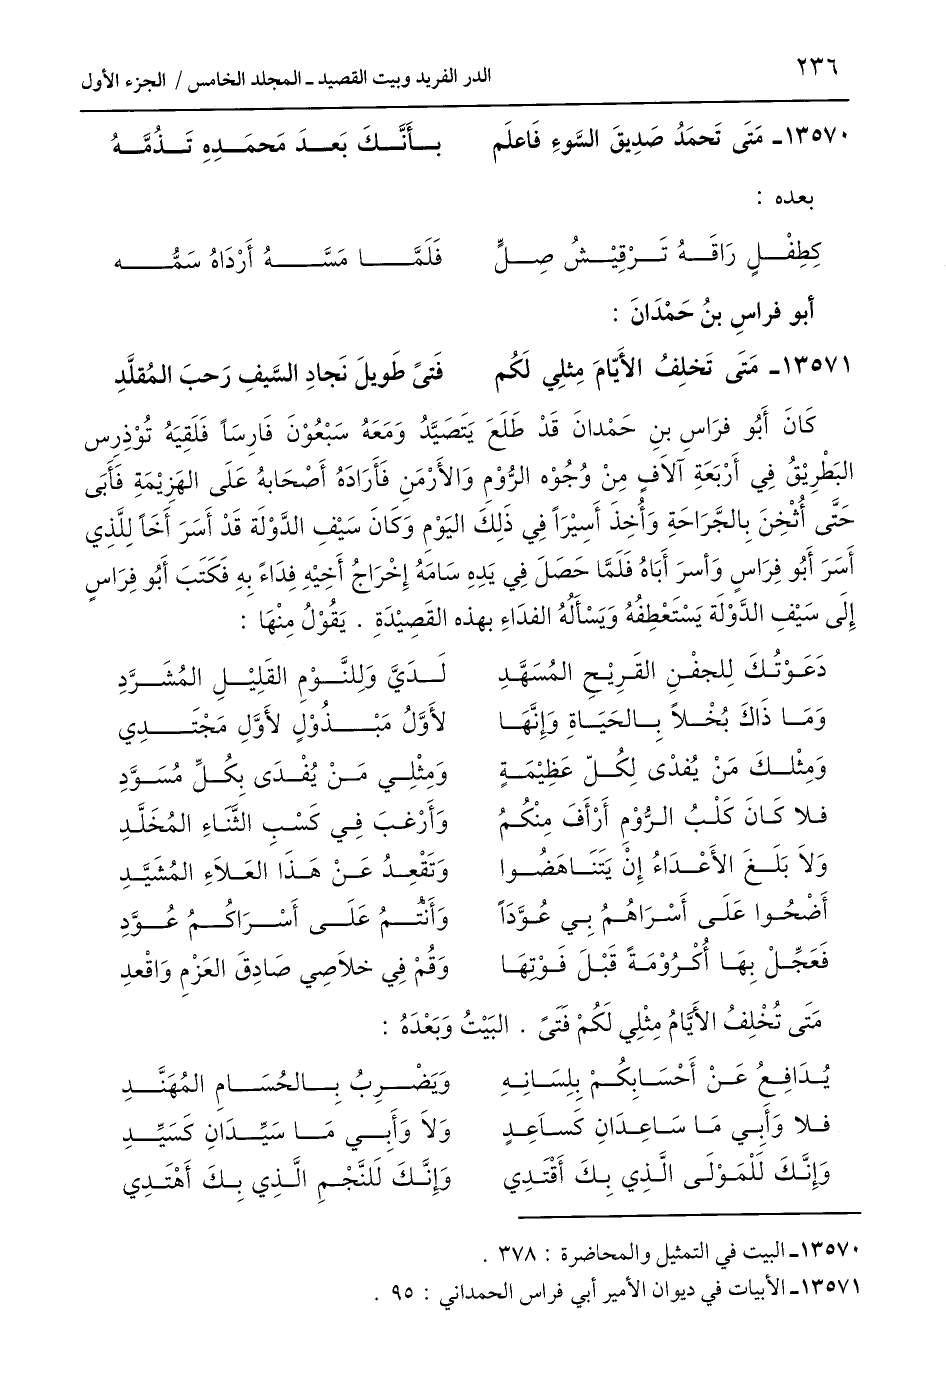 ٢٣٦
الدر الفريد وبيت القصيد ـ المجلد الخامس / الجزء الأول
١٣٥٧٠ـ مَتَى تَحمَدُ صَدِيقَ السَّوءِ فَاعلَم بـأَنَّـكَ بَعـدَ مَحمَـدِهِ تَـذُمَّـهُ
بعده :
كَطِفْـلٍ رَاقَـهُ تَـرْقِيْـشُ صِـلٍّ فَلَمَّـا مَسَّـهُ أَرْدَاهُ سَمُّـه
أبو فراسِ بنُ حَمْدَانَ :
١٣٥٧١ـ مَتَى تَخلِفُ الأَيَّامَ مِثلِي لَكُم فَتىً طَوِيلَ نَجادِ السَّيفِ رَحبَ المُقلَّدِ
كَانَ أَبُو فرَاسِ بنِ حَمْدَانَ قَدْ طَلَعَ يَتَصَيَّدُ وَمَعَهُ سَبْعُوْنَ فَارِسَاً فَلَقِيَهُ تُوْذِرسِ
البَطْرِيْقُ فِي أَرْبَعَةِ آلاَفٍ مِنْ وُجُوْهِ الرُّوْمِ وَالأَرْمَنِ فَأَرَادَهُ أَصْحَابهُ عَلَى الهَزِيْمَةِ فَأَبَى
حَتَّى أُثْخِنَ بِالجَّرَاحَةِ وَأُخِذَ أَسِيْرَاً فِي ذَلِكَ اليَوْمِ وَكَانَ سَيْفِ الدَّوْلَة قَدْ أَسَرَ أَخَاً لِلَّذِي
أَسَرَ أَبُو فِرَاسٍ وَأسرَ أَبَاهُ فَلَمَّا حَصَلَ فِي يَدِهِ سَامَهُ إِخْرَاجُ أَخِيْهِ فِدَاءً بِهِ فَكَتَبَ أَبُو فِرَاسٍ
إِلَى سَيْفِ الدَّوْلَة يَسْتَعْطِفُهُ وَيَسْأَلُهُ الفدَاءِ بهذه القَصِيْدَةِ . يَقُوْلُ مِنْهَا :
دَعَـوْتُـكَ لِلجفْـنِ القَـرِيْـحِ المُسَهَّـدِ لَـدَيَّ وَلِلنَّـوْمِ القَلِيْـلِ المُشَـرَّدِ
وَمَـا ذَاكَ بُخْـلاً بِـالحَيَـاةِ وَإِنَّهَـا لأَوَّلُ مَبْـذُوْلٍ لأَوَّلِ مَجْتَـدِي
وَمِثْلـكَ مَنْ يُفْدَى لِكُـلِّ عَظِيْمَـةٍ وَمِثْلِـي مَـنْ يُفْـدَى بِكُـلِّ مُسَـوَّدِ
فـلا كَـانَ كَلْـبُ الـرُّوْمِ أَرْأَفَ مِنْكُـمُ وَأَرْغَـبَ فِـي كَسْـبِ الثَّنَـاءِ المُخَلَّـدِ
وَلاَ بَلَـغَ الأَعْـدَاءُ إِنْ يَتَنَـاهَضُـوا وَتَقْعُـدُ عَـنْ هَـذَا العَـلاَءِ المُشَيَّـدِ
أَضْحُـوا عَلَـى أَسْـرَاهُـمُ بِـي عُـوَّدَاً وَأَنْتُـمُ عَلَـى أَسْـرَاكُـمُ عُـوَّدِ
فَعَجِّـلْ بِهَـا أُكْـرُوْمَـةً قَبْـلَ فَـوْتِهَـا وَقُمْ فِي خلاَصِي صَادِقَ العَزْمِ وَاقْعدِ
مَتَى تُخْلِفُ الأَيَّامُ مِثْلِي لَكُمْ فَتَىً . البَيْتُ وَبَعْدَهُ :
يُـدَافِـعُ عَـنْ أَحْسَـابِكُـمْ بِلِسَـانِـهِ وَيَضْـرِبُ بِـالحُسَـامِ المُهَنَّـدِ
فـلا وَأَبِـي مَـا سَـاعِـدَانِ كَسَـاعِـدٍ وَلاَ وَأَبِـي مَـا سَيِّـدَانِ كَسَيِّـدِ
وَإِنَّـكَ لَلْمَـوْلَـى الَّـذِي بِـكَ أَقْتَـدِي وَإِنَّـكَ لَلنَّجْـمِ الَّـذِي بِـكَ أَهْتَـدِي
١٣٥٧٠ـ البيت في التمثيل والمحاضرة : ٣٧٨ .
١٣٥٧١ـ الأبيات في ديوان الأمير أبي فراس الحمداني : ٩٥ .